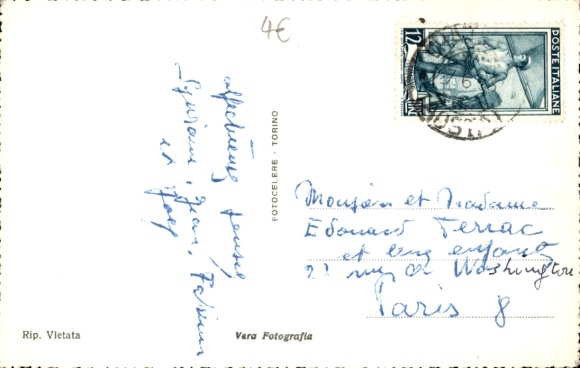 4€
12
POSTE ITALIANE
affectueuses pensées
Jean,
et
FOTOCELERE - TORINO
Monsieur et Madame
Edouard Terrac
et leurs enfants
21 rue de Washington
Paris 8
Rip. Vietata
Vera Fotografia